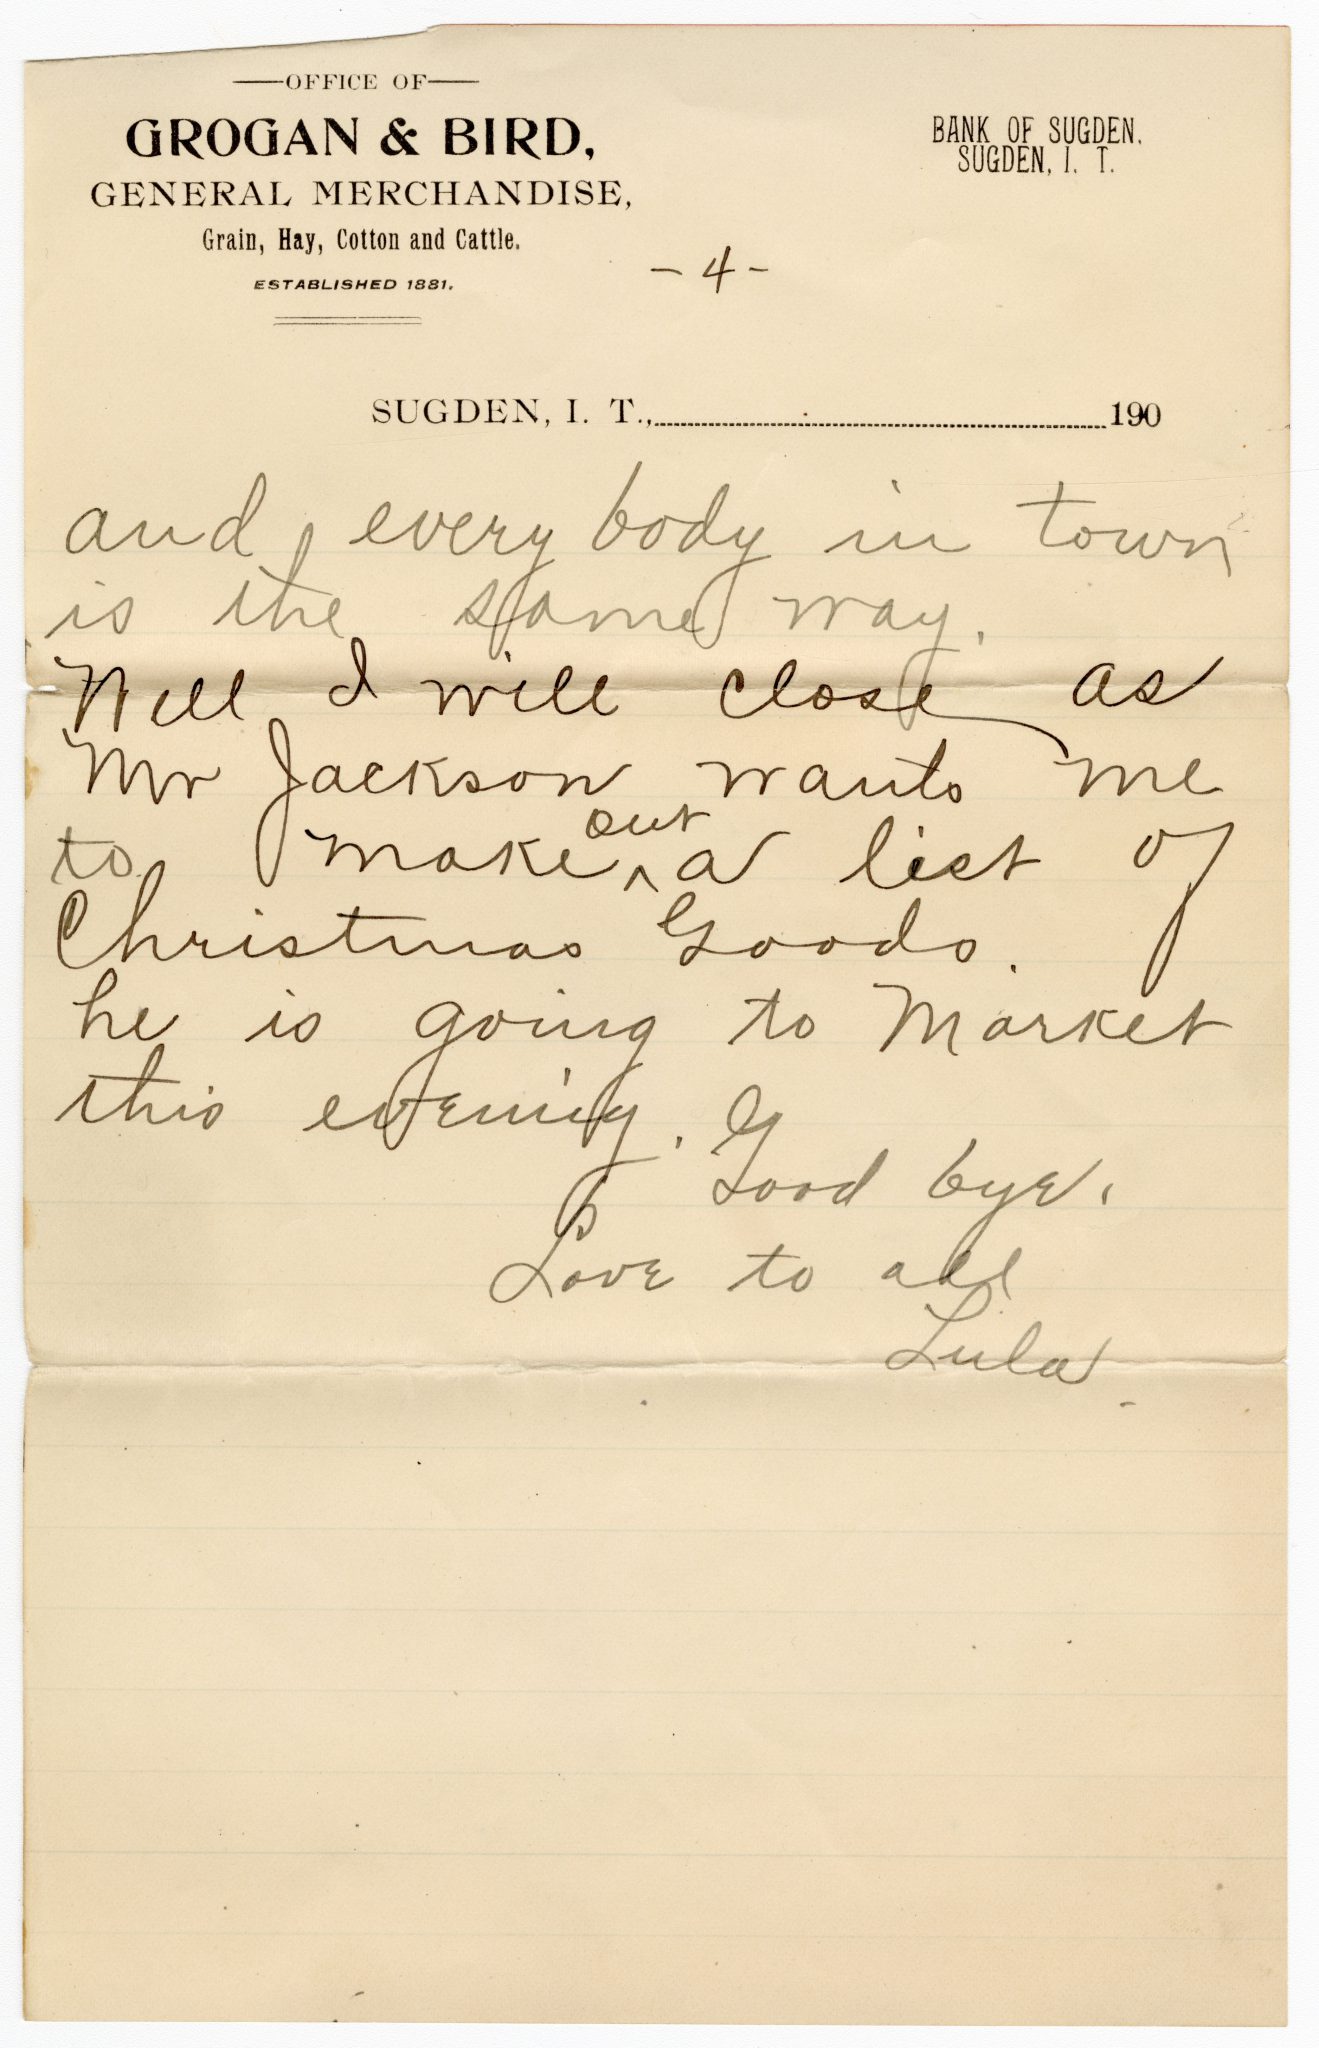 OFFICE OF
GROGAN & BIRD,
GENERAL MERCHANDISE,
Grain, Hay, Cotton and Cattle.
ESTABLISHED 1881.
BANK OF SUGDEN.
SUGDEN, I. T.
- 4 -
SUGDEN, I. T., 190
and every body in town
is the same way.
Well I will close as
Mr Jackson wants me
to make ^out a list of
Christmas Goods.
he is going to Market
this evening.
Good bye.
Love to all
Lula